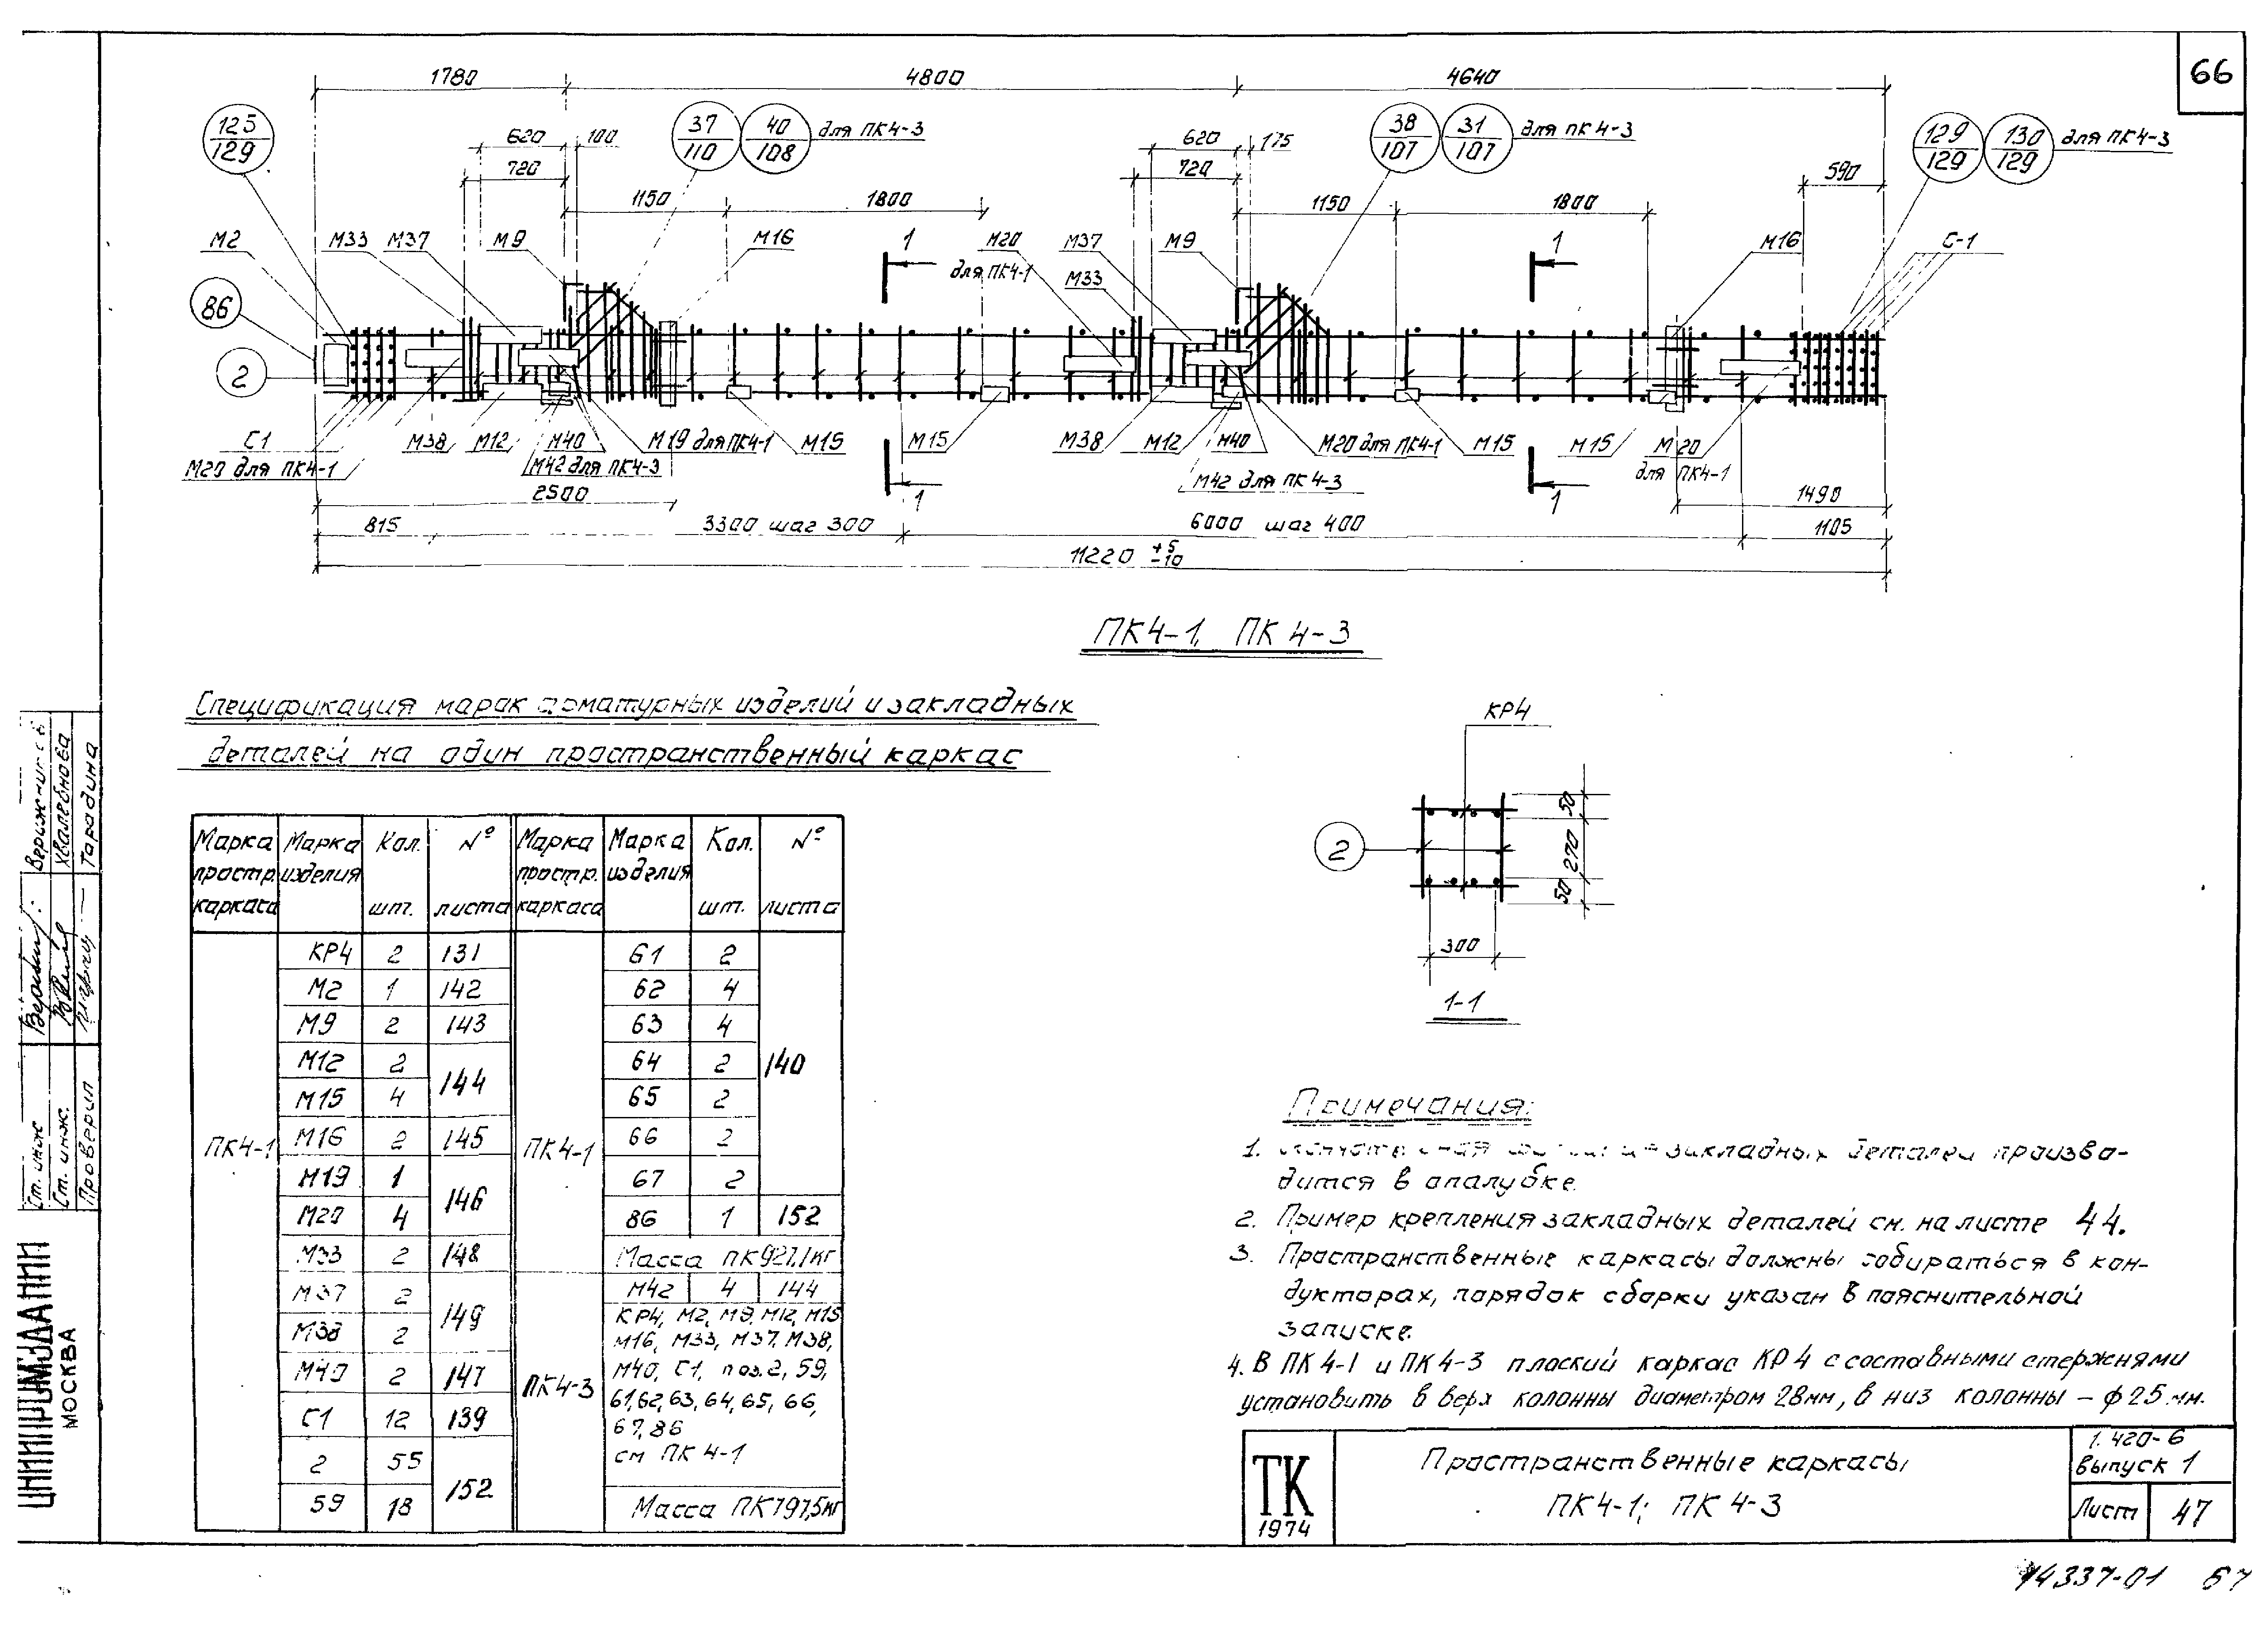 66
1780 4800 4640
125/129 37/110 40/108 для ПК4-3 38/107 31/107 для ПК4-3 129/129 130/129 для ПК4-3
620 100 620 175
720 720 590
1150 1800 1150 1800
М2 М33 М37 М9 М16 1 М20 М37 М9 1 М16 С-1
для ПК4-1 М33
86
2
С1 М38 М12 М40 М19 для ПК4-1 М15 М15 М38 М12 М40 М20 для ПК4-1 М15 М15 М20
М20 для ПК4-1 М42 для ПК4-3 М42 для ПК4-3 для ПК4-1
2500 1 1 1490
815 3300 шаг 300 6000 шаг 400 1105
11220 +5 −10
ПК4-1, ПК4-3
Спецификация марок арматурных изделий и закладных
деталей на один пространственный каркас
Марка простр. каркаса Марка изделия Кол. шт. № листа Марка простр. каркаса Марка изделия Кол. шт. № листа
ПК4-1
КР4 2 131
М2 1 142
М9 2 143
М12 2 144
М15 4
М16 2 145
М19 1 146
М20 4
М33 2 148
М37 2 149
М38 2
М40 2 147
С1 12 139
2 55 152
59 18
ПК4-1
61 2 140
62 4
63 4
64 2
65 2
66 2
67 2
86 1 152
Масса ПК 927,1кг
ПК4-3
М42 4 144
КР4, М2, М9, М12, М15
М16, М33, М37, М38,
М40, С1, поз. 2, 59,
61, 62, 63, 64, 65, 66,
67, 86
см ПК 4-1
Масса ПК 797,5кг
КР4
2
50
270
50
300
1-1
Примечания:
1. закладных деталей произво-
дится в опалубке.
2. Пример крепления закладных деталей см. на листе 44.
3. Пространственные каркасы должны собираться в кон-
дукторах, порядок сборки указан в пояснительной
записке.
4. В ПК4-1 и ПК4-3 плоский каркас КР4 с составными стержнями
установить в верх колонны диаметром 28мм, в низ колонны – ф25 мм.
ТК
1974
Пространственные каркасы
ПК4-1; ПК4-3
1.420-6
выпуск 1
Лист 47
14337-01 67
Ст. инж
Ст. инж.
Проверил
Хвалебнова
Тарадина
ЦНИИПРОМЗДАНИЙ
МОСКВА